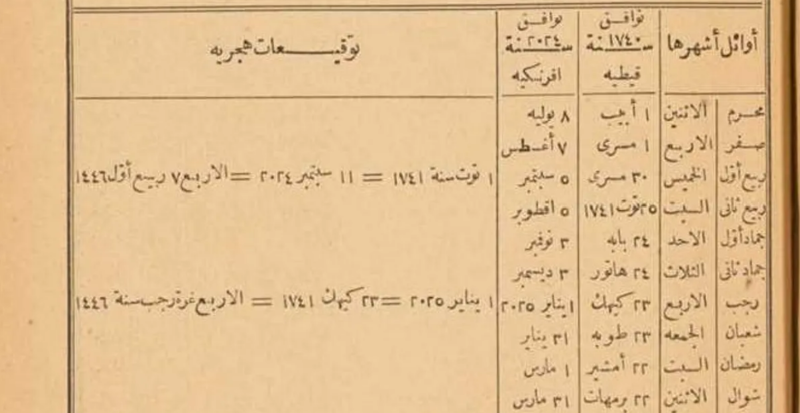 أوائل أشهرها توافق سنة ١٧٤٠ قبطيه توافق سنة ٢٠٢٤ افرنكيه توقيعات هجريه
محرم الاثنين ١ أبيب ٨ يوليه
صفر الاربع ١ مسرى ٧ أغسطس
ربيع أول الخميس ٣٠ مسرى ٥ سبتمبر ١ توت سنة ١٧٤١ = ١١ سبتمبر ٢٠٢٤ = الاربع ٧ ربيع أول ١٤٤٦
ربيع ثانى السبت ٢٥ توت ١٧٤١ ٥ اقطوبر
جماد أول الاحد ٢٤ بابه ٣ نوفمبر
جماد ثانى الثلاث ٢٤ هاتور ٣ ديسمبر
رجب الاربع ٢٣ كيهك ١ يناير ٢٠٢٥ ١ يناير ٢٠٢٥ = ٢٣ كيهك ١٧٤١ = الاربع غرة رجب سنة ١٤٤٦
شعبان الجمعه ٢٣ طوبه ٣١ يناير
رمضان السبت ٢٢ أمشير ١ مارس
شوال الاثنين ٢٢ برمهات ٣١ مارس